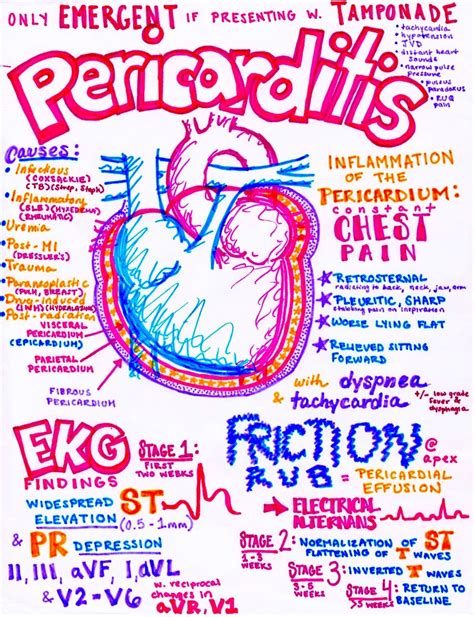 ONLY EMERGENT IF PRESENTING W. TAMPONADE
• tachycardia
• hypotension
• JVD
• distant heart
sounds
• narrow pulse
pressure
• pulsus
paradoxus
• RUQ
pain
Pericarditis
Causes:
• Infectious
(COXSACKIE)
(TB) (Strep, Staph)
• Inflammatory
(SLE)
(RHEUMATIC)
• Uremia
• Post-MI
(DRESSLER'S)
• Trauma
• Paraneoplastic
(LUNG, BREAST)
• Drug-induced
(INH) (HYDRALAZINE)
• Post-radiation
VISCERAL
PERICARDIUM
(EPICARDIUM)
PARIETAL
PERICARDIUM
FIBROUS
PERICARDIUM
INFLAMMATION
OF THE
PERICARDIUM:
constant
CHEST
PAIN
RETROSTERNAL
radiating to back, neck, jaw, arm
PLEURITIC, SHARP
stabbing pain on inspiration
WORSE LYING FLAT
RELIEVED SITTING
FORWARD
with dyspnea
& tachycardia
+/- low grade
fever &
dysphagia
EKG
FINDINGS
STAGE 1:
FIRST
TWO WEEKS
WIDESPREAD ST
ELEVATION (0.5-1mm)
& PR DEPRESSION
II, III, aVF, I, aVL
& V2-V6
w. reciprocal
changes in
aVR, V1
FRICTION
RUB
@
apex
= PERICARDIAL
EFFUSION
→ ELECTRICAL
ALTERNANS
STAGE 2:
1-3
WEEKS
NORMALIZATION OF ST
FLATTENING OF T WAVES
STAGE 3:
3-5
WEEKS
INVERTED T WAVES
STAGE 4:
>5 WEEKS
RETURN TO
BASELINE